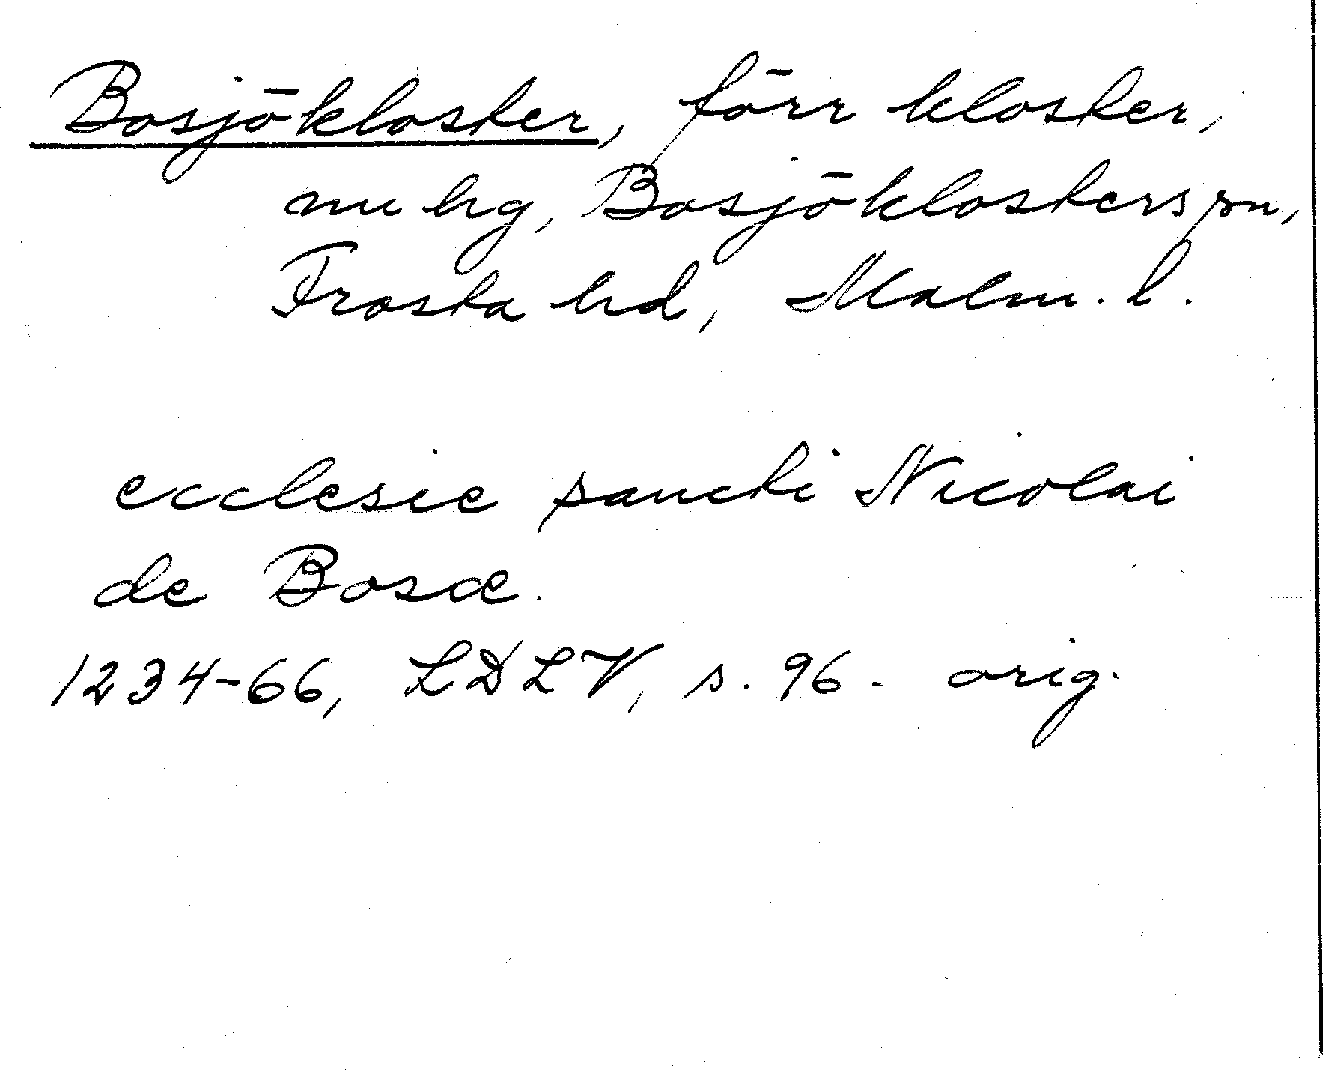 Bosjökloster, förr kloster,
nu hg, Bosjöklosters sn,
Frosta hd, Malm. l.
ecclesie sancti Nicolai
de Bosœ.
1234-66, LDLV, s. 96. orig.